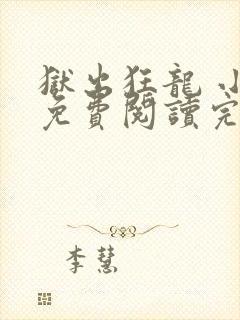 獄出狂龍 小
免費閱讀完
李慧